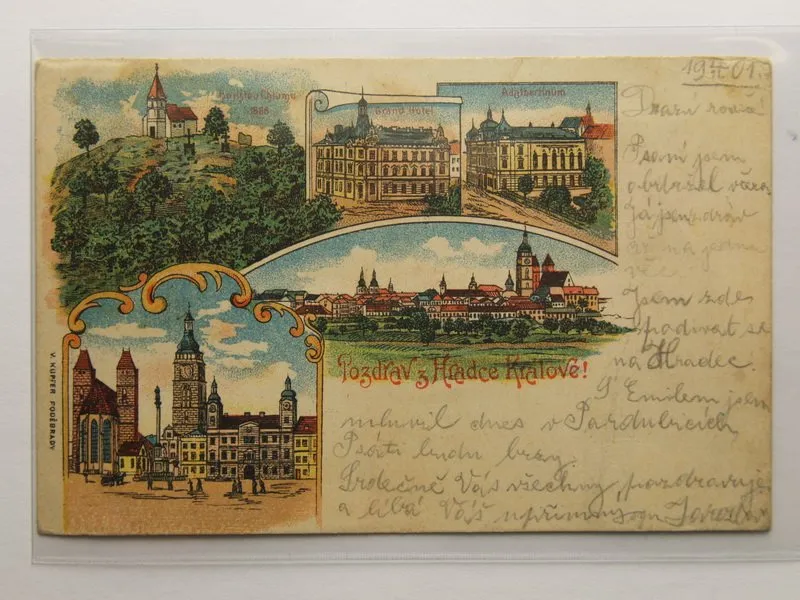 1901
Grand Hotel
Adalbertinum
1866
Pozdrav z Hradce Králové!
V. KUPFER PODĚBRADY
Drazí
Psaní jsem
obdržel
Já jsem zdráv
Jsem zde
podívat se
na Hradec.
S' Emilem jsem
mluvil dnes v Pardubicích
Psáti budu brzy.
Srdečně Vás všechny pozdravuje
a líbá Váš upřímný syn Jaroslav